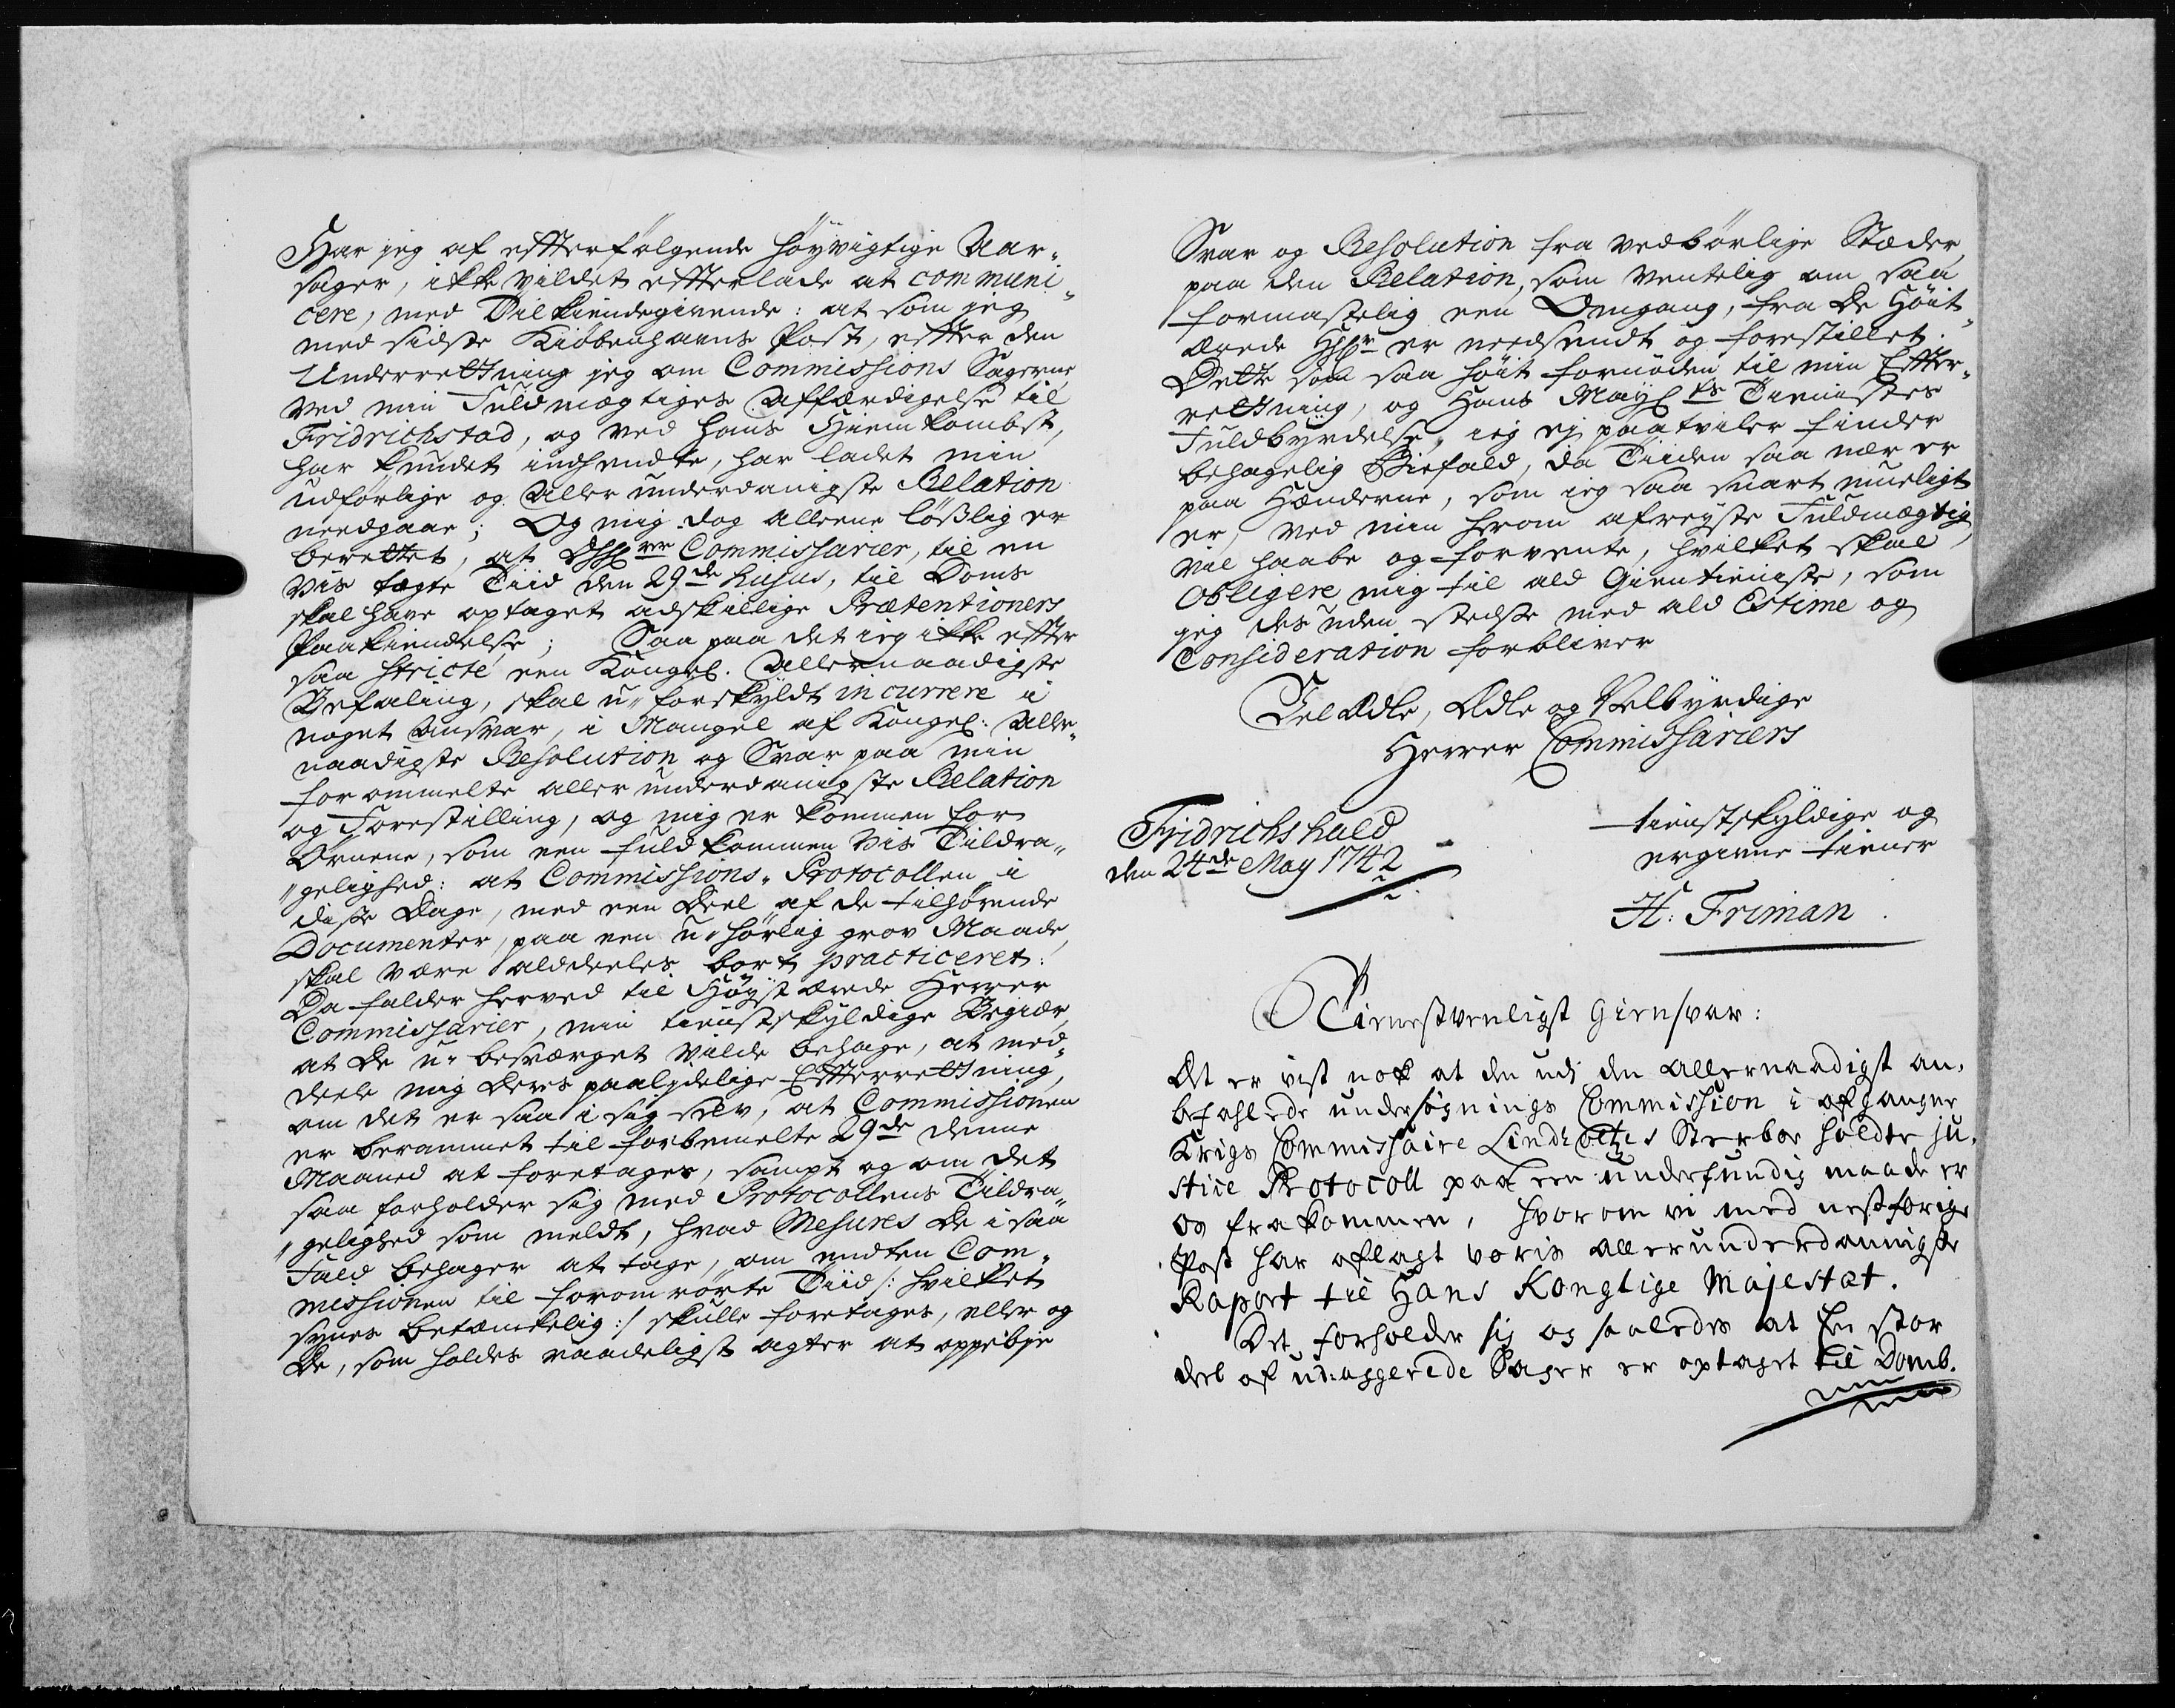 Har jeg af effterfølgende høyvigtige Aar„
sager, ikke vildet effterlade at communi„
cere, med Tilkiendegivende: at som jeg
med sidste Kiøbenhavns Post, effter den
Underrettning jeg om Commissions Sagerne,
ved min Fuldmægtiges Affærdigelse til
Fridrichstad, og ved hans Hiemkombst,
har kundet indhendte, har ladet min
udførlige og Aller underdanigste Relation
needgaae; Og mig dog alleene løßlig er
berettet, at Commissarier, til en
vis fagte Tiid den 29de hujus, til Doms
skal have optaget adskillige Prætentioners
Paakiendelse; Saa paa det ieg ikke effter
saa stricte een Kongel. Allernaadigste
Befaling, skal u„forskyldt incurrere i
noget Ansvar, i Mangel af Kongel: Aller„
naadigste Resolution og Svar paa min
for ommelte aller underdanigste Relation
og Forestilling, og mig er kommen for
Ørnene, som een fuldkommen vis Tildra„
„gelighed: at Commissions„ Protocollen i
disse Dage, med een Deel af de tilhørende
Documenter, paa een u„hørlig grov Maade,
skal være alddeeles bort practiceret:
Da falder herved til Høystærede Herrer
Commissarier, min tienstskyldige Begiær,
at De u„besværget vilde behage, at med„
deele mig Deres paalidelige Effterrettning,
om det er saa i sig selv, at Commissionen
er berammet til forbemelte 29de denne
Maaned at foretages, sampt og om det
saa forholder sig med Protocollens Tildra„
„gelighed som meldt, hvad Mesures De i saa
Fald behager at tage, om endten Com„
missionen til forommrørte Tiid /: hvilket
synes betænkelig :/ skulle foretages, eller og
De, som holdes raadeligst agter at oppebje
Svar og Resolution fra vedbørlige Stæder,
paa den Relation, som ventelig om saa
formastelig een Omgang, fra De Høit„
ærede HHr er needsendt og forestillet.
Dette som saa høit fornøden til min Effter„
rettning, og Hans Mayts Tienistes
Fuldbyrdelse, ieg ej paatviler finder
behagelig Biefald, da Tiiden saa nær er
paa Hænderne, som ieg saa snart mueligt
er, ved min herom afreyste Fuldmægtig,
vil haabe og forvente, hvilket skal
obligere mig til ald Gientieniste, som
jeg des uden stedse med ald Estime og
Consideration forbliver
Vel Ædle, Ædle og Velbyrdige
Herrer Commissariers
tienstskyldige og
ergivne tiener
Fridrichshald
den 24de May 1742
H: Friman.
Tienestvenligst Giensvar:
Det er vist nok at den udi den Allernaadigst an„
befahlede undersøgnings Commission i afgangne
Krigs Commissaire Lindholtzes Sterboe holdte Ju„
stice Protocoll paa een underfundig maade er
os frakommen, hvorom vi med nestforige
Post har aflagt voris Allerunderdannigste
Raport til Hans Konglige Majestæt.
Det forholder sig og saaledes at En stor
deel af udaggerede Sager er optaget til Domb.